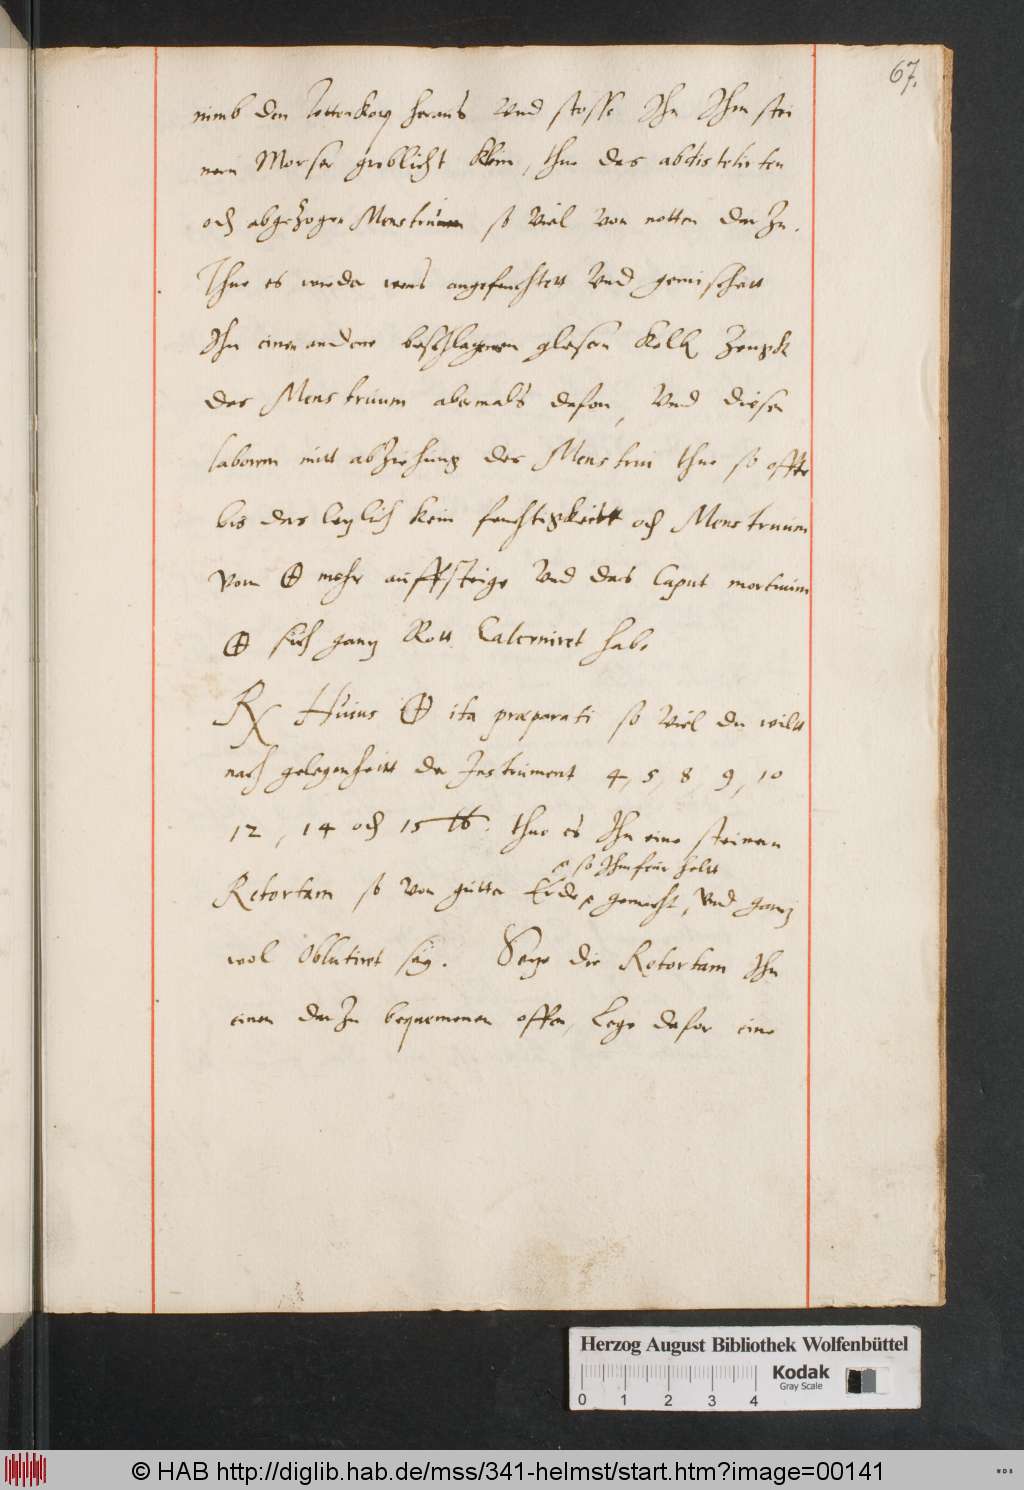 67.
nimb den Tottenkop heraus Vnd stosse Ihn Ihm stei
nern Morser groblicht klein, thue das abdistelirten
od abgezogen Menstruum so Viel Von notten dar Zu.
Thue es wieder wens angefeuchtett Vnd gemischett
Ihn einen andern beschlagenen glesern Kolb Zeugk
das Menstruum abermals dafon, Vnd diesen
laborem mitt abZiehung des Menstrui thue so offte
bis das letzlich kein feuchtigkeitt od Menstruum
Vom 🜨 mehr auffsteige Vnd das Caput mortuum
🜨 sich gantz Rott Calciniret habe
℞ Huius 🜨 ita præparati so Viel du wiltt
nach gelegenheitt der Instrument 4, 5, 8, 9, 10
12, 14 od 15 ℔. thue es Ihn eine steinern
so Ihm feur heltt
Retortam so Von gutter Erde gemacht, Vnd gantz
wol Oblutiret sey. Setze die Retortam Ihn
einen dar Zu bequemenen offen, Lege dafor eine
Herzog August Bibliothek Wolfenbüttel
Kodak
Gray Scale
0 1 2 3 4
© HAB http://diglib.hab.de/mss/341-helmst/start.htm?image=00141